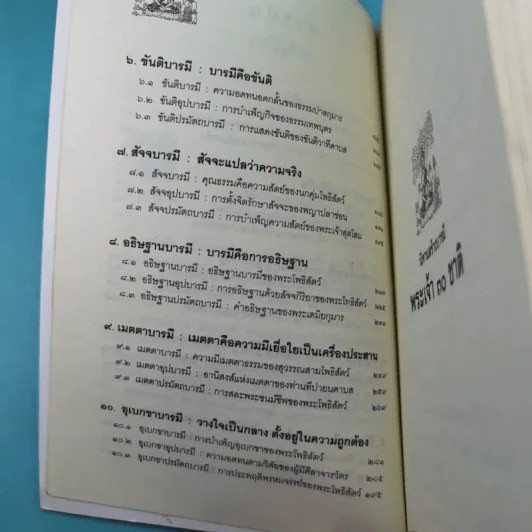 ๖. ขันติบารมี : บารมีคือขันติ
๖.๑ ขันติบารมี : ความอดทนอดกลั้นของธรรมปาลกุมาร
๖.๒ ขันติอุปบารมี : การบำเพ็ญกิจของธรรมเทพบุตร
๖.๓ ขันติปรมัตถบารมี : การแสดงขันติของขันติวาทีดาบส
๗. สัจจบารมี : สัจจะแปลว่าความจริง
๗.๑ สัจจบารมี : คุณธรรมคือความสัตย์ของนกคุ่มโพธิสัตว์
๗.๒ สัจจอุปบารมี : การตั้งจิตรักษาสัจจะของพญาปลาช่อน
๗.๓ สัจจปรมัตถบารมี : การบำเพ็ญความสัตย์ของพระเจ้าสุตโสม
๘. อธิษฐานบารมี : บารมีคือการอธิษฐาน
๘.๑ อธิษฐานบารมี : อธิษฐานบารมีของพระโพธิสัตว์
๘.๒ อธิษฐานอุปบารมี : การอธิษฐานด้วยสัจจกิริยาของพระโพธิสัตว์ ๒๒๕
๘.๓ อธิษฐานปรมัตถบารมี : คำอธิษฐานของพระเตมิยกุมาร ๒๓๕
๙. เมตตาบารมี : เมตตาคือความมีเยื่อใยเป็นเครื่องประสาน
๙.๑ เมตตาบารมี : ความมีเมตตาธรรมของสุวรรณสามโพธิสัตว์ ๒๔๙
๙.๒ เมตตาอุปบารมี : อานิสงส์แห่งเมตตาของท่านที่ปายนดาบส ๒๕๙
๙.๓ เมตตาปรมัตถบารมี : การสละพระชนม์ชีพของพระโพธิสัตว์ ๒๖๙
๑๐. อุเบกขาบารมี : วางใจเป็นกลาง ตั้งอยู่ในความถูกต้อง
๑๐.๑ อุเบกขาบารมี : การบำเพ็ญอุเบกขาของพระโพธิสัตว์ ๒๘๑
๑๐.๒ อุเบกขาอุปบารมี : ความอดทนตามวิสัยของผู้มีศีลาจารวัตร ๒๘๕
๑๐.๓ อุเบกขาปรมัตถบารมี : การประพฤติพรหมจรรย์ของพระโพธิสัตว์ ๑๙๕
พระเจ้า ๓๐ ชาติ